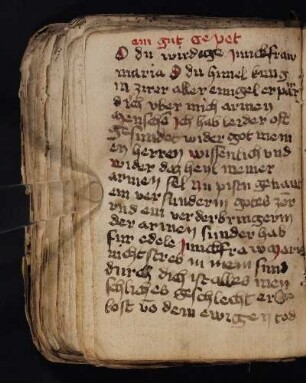 ein gut gepet
O du wirdige Junckfraw
maria O du himel kung
in zirer aller enngel erpar
dich vber mich armen
mensche Ich hab leider oft
gesundet wider got mein
en herren wissenlich vnd
wider das heil meiner
armen sel nu pistu genant
ein versunerin gotes zor
vnd ein verderbringerin
der armen sunder hab
fur edele Junckfraw maria
nicht streb in mein sund
durch dich ist alles men
schliches geschlecht er
lost vo dem ewigen tod